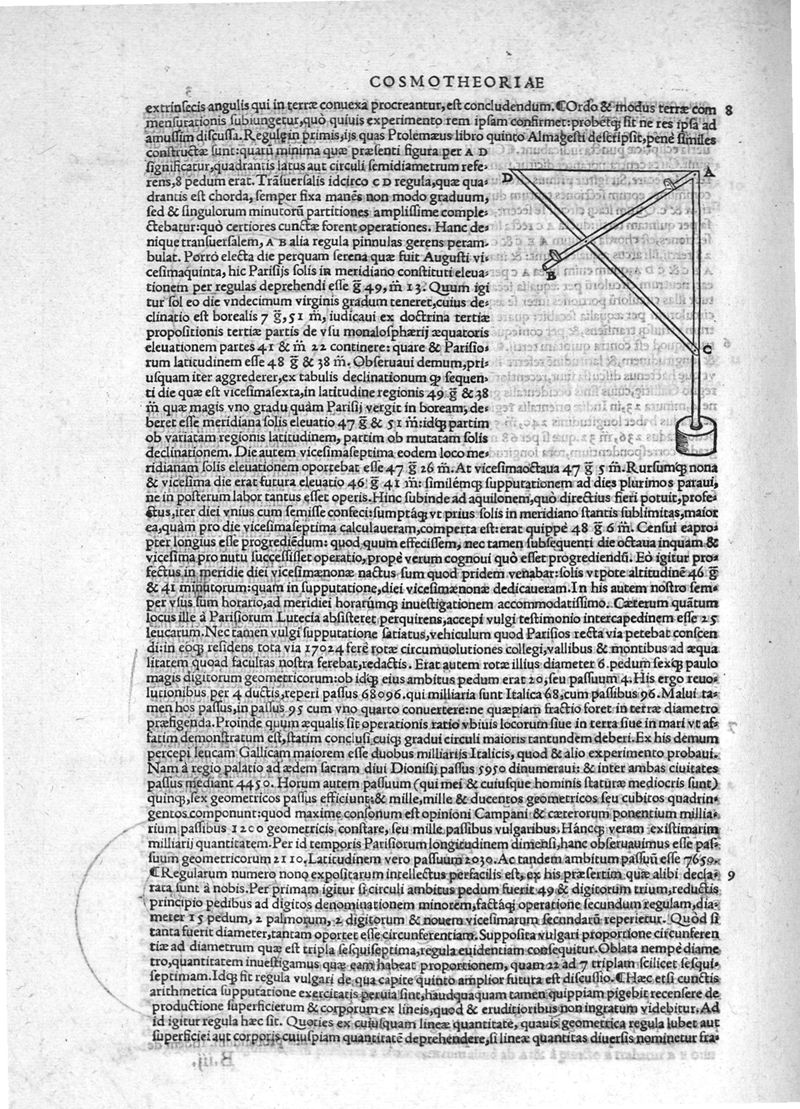 COSMOTHEORIAE
extrinsecis angulis qui in terræ conuexa procreantur, est concludendum. ¶Ordo & modus terræ com 8
mensurationis subiungetur, quò quiuis experimento rem ipsam confirmet: probetq; sit ne res ipsa ad
amussim discussa. Regulę in primis, ijs quas Ptolemæus libro quinto Almagesti descripsit, penè similes
constructæ sunt: quarū minima quæ præsenti figura per A D
significatur, quadrantis latus aut circuli semidiametrum refe-
rens, 8 pedum erat. Trāsuersalis idcirco C D regula, quæ qua-
drantis est chorda, semper fixa manēs non modo graduum,
sed & singulorum minutorū partitiones amplissime comple-
ctebatur: quò certiores cunctæ forent operationes. Hanc de-
nique transuersalem, A B alia regula pinnulas gerens peram-
bulat. Porrò electa die perquam serena quæ fuit Augusti vi-
cesimaquinta, hic Parisijs solis in meridiano constituti eleua-
tionem per regulas deprehendi esse g̃ 49, m̃ 13. Quum igi
tur sol eo die vndecimum virginis gradum teneret, cuius de-
clinatio est borealis 7 g̃, 51 m̃, iudicaui ex doctrina tertiæ
propositionis tertiæ partis de vsu monalosphærij æquatoris
eleuationem partes 41 & m̃ 22 continere: quare & Parisio-
rum latitudinem esse 48 g̃ & 38 m̃. Obseruaui demum, pri-
usquam iter aggrederer, ex tabulis declinationum q; sequen-
ti die quæ est vicesimasexta, in latitudine regionis 49 g̃ & 38
m̃ quæ magis vno gradu quàm Parisij vergit in boream, de-
beret esse meridiana solis eleuatio 47 g̃ & 51 m̃: idq; partim
ob variatam regionis latitudinem, partim ob mutatam solis
declinationem. Die autem vicesimaseptima eodem loco me-
ridianam solis eleuationem oportebat esse 47 g̃ 26 m̃. At vicesimaoctaua 47 g̃ 5 m̃. Rursumq; nona
& vicesima die erat futura eleuatio 46 g̃ 41 m̃: similémq; supputationem ad dies plurimos paraui,
ne in posterum labor tantus esset operis. Hinc subinde ad aquilonem, quò directius fieri potuit, profe-
ctus, iter diei vnius cum semisse confeci: sumptáq; vt prius solis in meridiano stantis sublimitas, maior
ea, quàm pro die vicesimaseptima calculaueram, comperta est: erat quippè 48 g̃ 6 m̃. Censui eapro-
pter longius esse progrediēdum: quod quum effecissem, nec tamen subsequenti die octaua inquam &
vicesima pro nutu successisset operatio, propè verum cognoui quò esset progrediendū. Eò igitur pro-
fectus in meridie diei vicesimænonæ nactus sum quod pridem venabar: solis vtpote altitudinē 46 g̃
& 41 minutorum: quam in supputatione, diei vicesimænonæ dedicaueram. In his autem nostro sem-
per vsus sum horario, ad meridiei horarúmq; inuestigationem accommodatissimo. Cæterum quātum
locus ille à Parisiorum Lutecia absisteret perquirens, accepi vulgi testimonio intercapedinem esse 25
leucarum. Nec tamen vulgi supputatione satiatus, vehiculum quod Parisios recta via petebat conscen
di: in eoq; residens tota via 17024 ferè rotæ circumuolutiones collegi, vallibus & montibus ad æqua
litatem quoad facultas nostra ferebat, redactis. Erat autem rotæ illius diameter 6. pedum sexq; paulo
magis digitorum geometricorum: ob idq; eius ambitus pedum erat 20, seu passuum 4. His ergo reuo-
lutionibus per 4 ductis, reperi passus 68096. qui milliaria sunt Italica 68, cum passibus 96. Malui ta-
men hos passus, in passus 95 cum vno quarto conuertere: ne quæpiam fractio foret in terræ diametro
præfigenda. Proinde quum æqualis sit operationis ratio vbiuis locorum siue in terra siue in mari vt af-
fatim demonstratum est, statim conclusi, cuiq; gradui circuli maioris tantundem deberi. Ex his demum
percepi leucam Gallicam maiorem esse duobus milliarijs Italicis, quod & alio experimento probaui.
Nam à regio palatio ad ædem sacram diui Dionisij passus 5950 dinumeraui: & inter ambas ciuitates
passus mediant 4450. Horum autem passuum (qui mei & cuiusque hominis staturæ mediocris sunt)
quinq;, sex geometricos passus efficiunt: & mille, mille & ducentos geometricos seu cubitos quadrin-
gentos componunt: quod maxime consonum est opinioni Campani & cæterorum ponentium millia-
rium passibus 1200 geometricis constare, seu mille passibus vulgaribus. Háncq; veram existimarim
milliarij quantitatem. Per id temporis Parisiorum longitudinem dimensi, hanc obseruauimus esse pas-
suum geometricorum 2110. Latitudinem vero passuum 2030. Ac tandem ambitum passuū esse 7650.
¶Regularum numero nono expositarum intellectus perfacilis est, ex his præsertim quæ alibi decla- 9
rata sunt à nobis. Per primam igitur si circuli ambitus pedum fuerit 49 & digitorum trium, reductis
principio pedibus ad digitos denominationem minorem, factáq; operatione secundum regulam, dia-
meter 15 pedum, 2 palmorum, 2 digitorum & nouem vicesimarum secundarū reperietur. Quòd si
tanta fuerit diameter, tantam oportet esse circunferentiam. Supposita vulgari proportione circunferen
tiæ ad diametrum quæ est tripla sesquiseptima, regula euidentiam consequitur. Oblata nempè diame
tro, quantitatem inuestigamus quæ eam habeat proportionem, quam 22 ad 7 triplam scilicet sesqui-
septimam. Idq; fit regula vulgari de qua capite quinto amplior futura est discussio. ¶Hæc etsi cunctis
arithmetica supputatione exercitatis peruia sint, haudquaquam tamen quippiam pigebit recensere de
productione superficierum & corporum ex lineis, quod & eruditioribus non ingratum videbitur. Ad
id igitur regula hæc sit. Quoties ex cuiusquam lineæ quantitate, quauis geometrica regula lubet aut
superficiei aut corporis cuiuspiam quantitatē deprehendere, si lineæ quantitas diuersis nominetur fra-
B.iij.
D
A
B
C